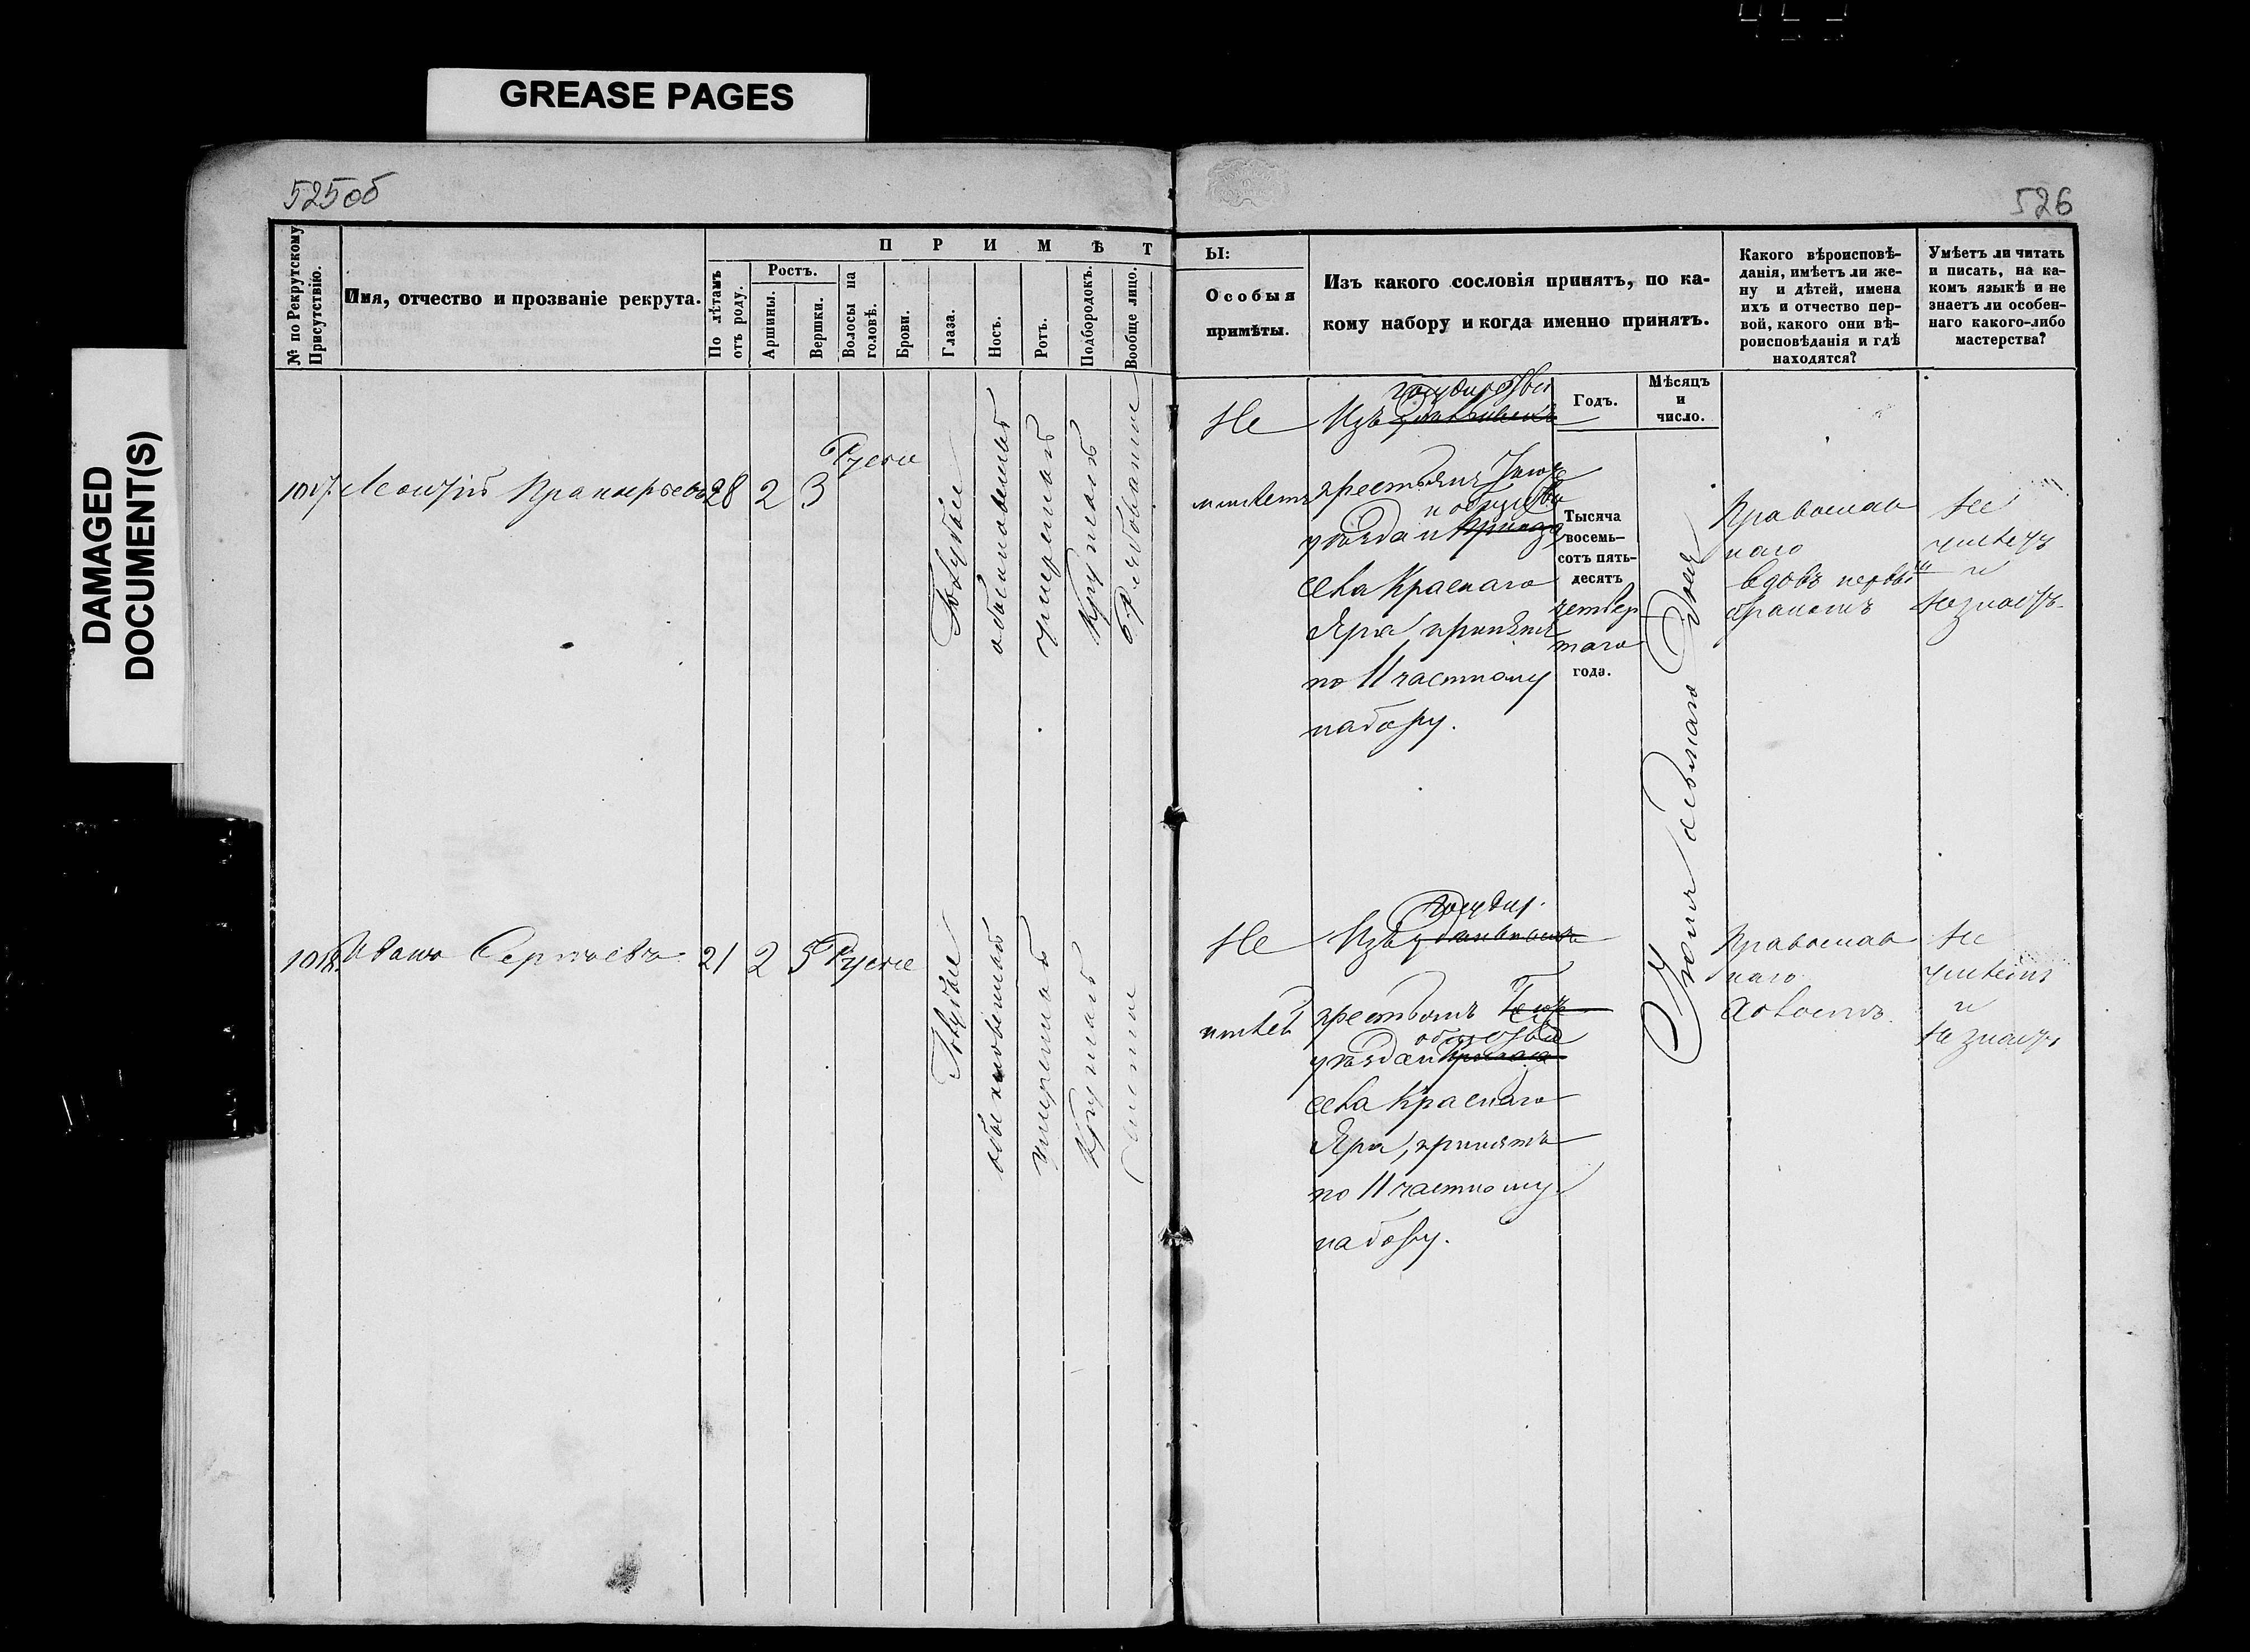 GREASE PAGES
DAMAGED
DOCUMENT(S)
525об
№ по Рекрутскому
Присутствію.
Имя, отчество и прозваніе рекрута.
П Р И М Ѣ Т
По лѣтамъ
отъ роду.
Ростъ.
Аршины.
Вершки.
Волосы на
головѣ.
Брови.
Глаза.
Носъ.
Ротъ.
Подбородокъ.
Вообще лицо.
1017.
28 2 3 Русые
Голубые
обыкновенный
умеренный
Круглый
1018. Иванъ Сергѣевъ 21 2 5 Русые
Голубые
обыкновенный
умеренный
Круглый
Чистое
526
Ы:
Особыя
примѣты.
Изъ какого сословія принятъ, по ка-
кому набору и когда именно принятъ.
Какого вѣроисповѣ-
данія, имѣетъ ли же-
ну и дѣтей, имена
ихъ и отчество пер-
вой, какого они вѣ-
роисповѣданія и гдѣ
находятся?
Умѣетъ ли читать
и писать, на ка-
комъ языкѣ и не
знаетъ ли особен-
наго какого-либо
мастерства?
Годъ.
Мѣсяцъ
и
число.
Не
имѣетъ
Изъ
крестьянъ
уѣзда и
села Краснаго
Яра принятъ
по 11 частному
набору.
Тысяча
восемь-
сотъ пять-
десятъ
четвер
таго
года.
Православ
наго
вдовъ первымъ
бракомъ
Не
умѣетъ
и
не знаетъ
Не
имѣетъ
Изъ государ.
крестьянъ
общества
уѣзда и
села Краснаго
Яра, принятъ
по 11 частному
набору.
Православ
наго
холостъ
Не
умѣетъ
и
не знаетъ